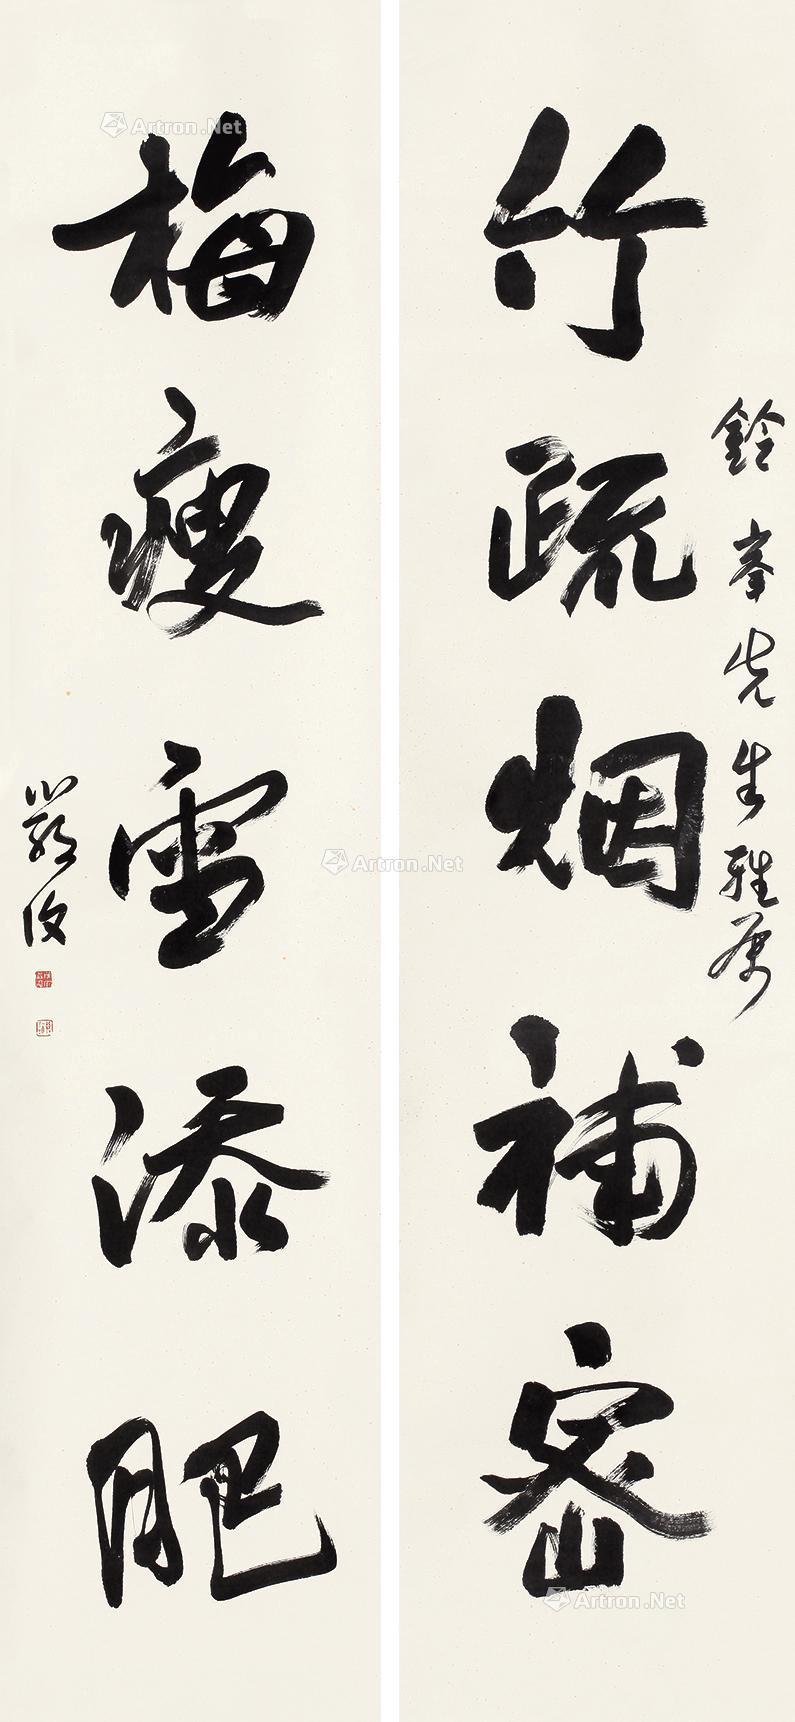 竹疏烟補密
峯先生雅屬
梅瘦雪添肥
嚴復
Artron.Net
Artron.Net
Artron.Net